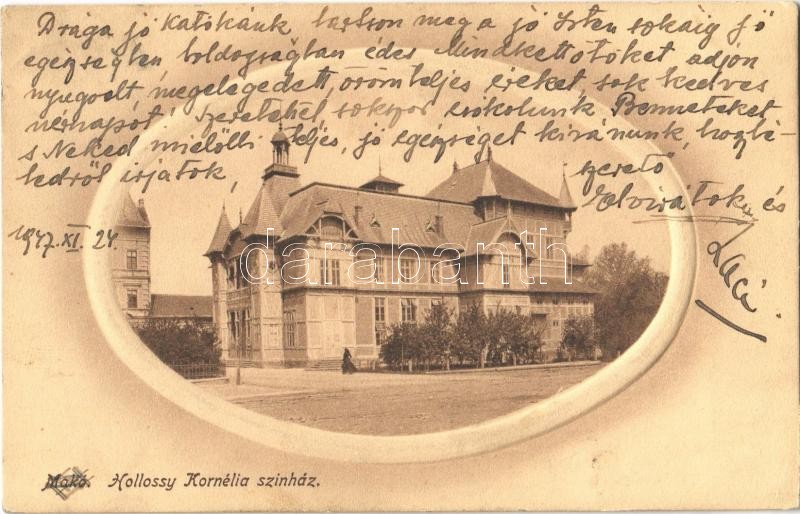 Drága jó Katókánk tartson meg a jó Isten sokáig jó
egészségben boldogságban édes Mindkettőtöket adjon
nyugodt, megelégedett, örömteljes éveket sok kedves
névnapot! Szeretettel sokszor csókolunk Benneteket
s Neked mielőbbi teljes, jó egészséget kívánunk,
ledről írjatok,
szerető
Elvirátok és
Laci
1947. XI. 24.
darabanth
Makó. Hollossy Kornélia szinház.